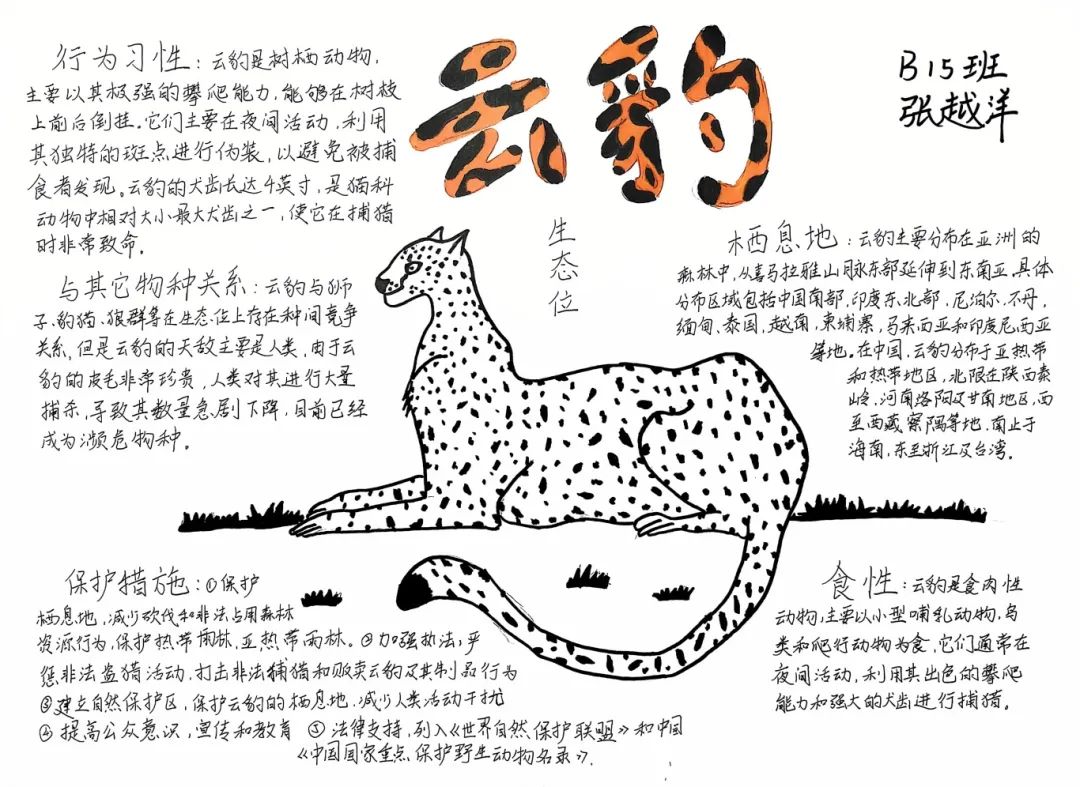 云豹
B15班
张越洋
生态位
行为习性：云豹是树栖动物，
主要以其极强的攀爬能力，能够在树枝
上前后倒挂。它们主要在夜间活动，利用
其独特的斑点进行伪装，以避免被捕
食者发现。云豹的犬齿长达4英寸，是猫科
动物中相对大小最大犬齿之一，使它在捕猎
时非常致命。
与其它物种关系：云豹与狮
子、豹猫、狼群等在生态位上存在种间竞争
关系，但是云豹的天敌主要是人类，由于云
豹的皮毛非常珍贵，人类对其进行大量
捕杀，导致其数量急剧下降，目前已经
成为濒危物种。
栖息地：云豹主要分布在亚洲的
森林中，从喜马拉雅山脉东部延伸到东南亚。具体
分布区域包括中国南部，印度东北部，尼泊尔，不丹，
缅甸，泰国，越南，柬埔寨，马来西亚和印度尼西亚
等地。在中国，云豹分布于亚热带
和热带地区，北限在陕西秦
岭，河南洛阳及甘南地区，西
至西藏察隅等地，南止于
海南，东至浙江及台湾。
保护措施：①保护
栖息地，减少砍伐和非法占用森林
资源行为，保护热带雨林，亚热带雨林。②加强执法，严
惩非法盗猎活动，打击非法捕猎和贩卖云豹及其制品行为
③建立自然保护区，保护云豹的栖息地，减少人类活动干扰
④提高公众意识，宣传和教育 ⑤法律支持，列入《世界自然保护联盟》和中国
《中国国家重点保护野生动物名录》.
食性：云豹是食肉性
动物，主要以小型哺乳动物，鸟
类和爬行动物为食，它们通常在
夜间活动，利用其出色的攀爬
能力和强大的犬齿进行捕猎。